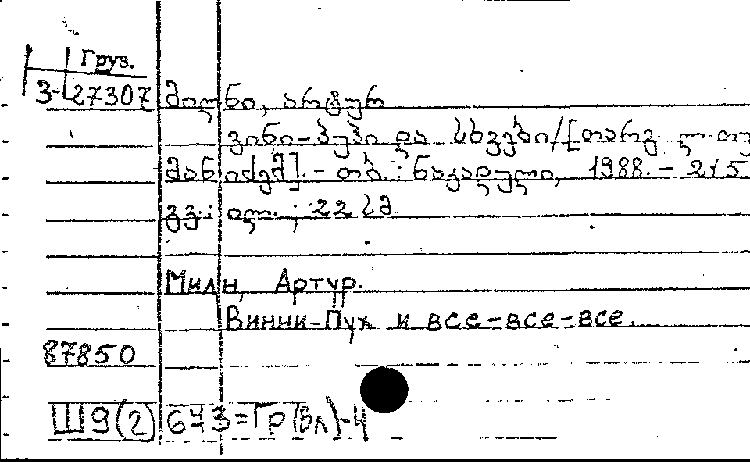 Груз.
3-27307 მილნი, არტურ
ვინი-პუჰი და სხვები/[თარგ. ლ. თუ
მანიძემ]. - თბ. : ნაკადული, 1988. - 215
გვ. : ილ. ; 22 სმ
Милн, Артур.
Винни-Пух и все-все-все.
87850
Ш9(2) 673=Гр(Вл)-4